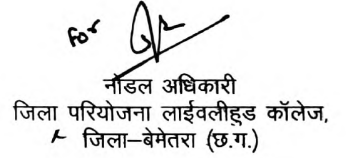 For
नोडल अधिकारी
जिला परियोजना लाईवलीहुड कॉलेज,
जिला–बेमेतरा (छ.ग.)